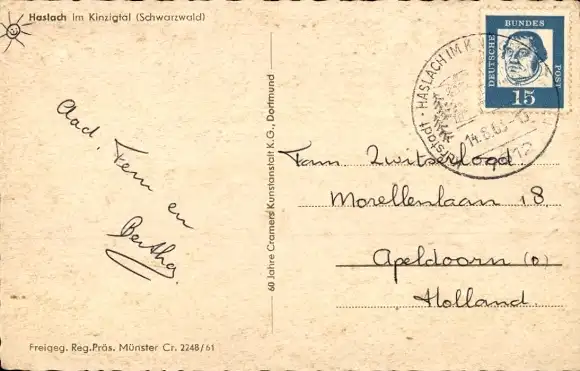 Haslach im Kinzigtal (Schwarzwald)
DEUTSCHE BUNDES POST
15
HASLACH IM K
14.8.63
60 Jahre Cramers Kunstanstalt K.G., Dortmund
Aad, Fem en
Bertha.
Fam. Zwitserlood
Morellenlaan 18
Apeldoorn (O)
Holland.
Freigeg. Reg. Präs. Münster Cr. 2248/61